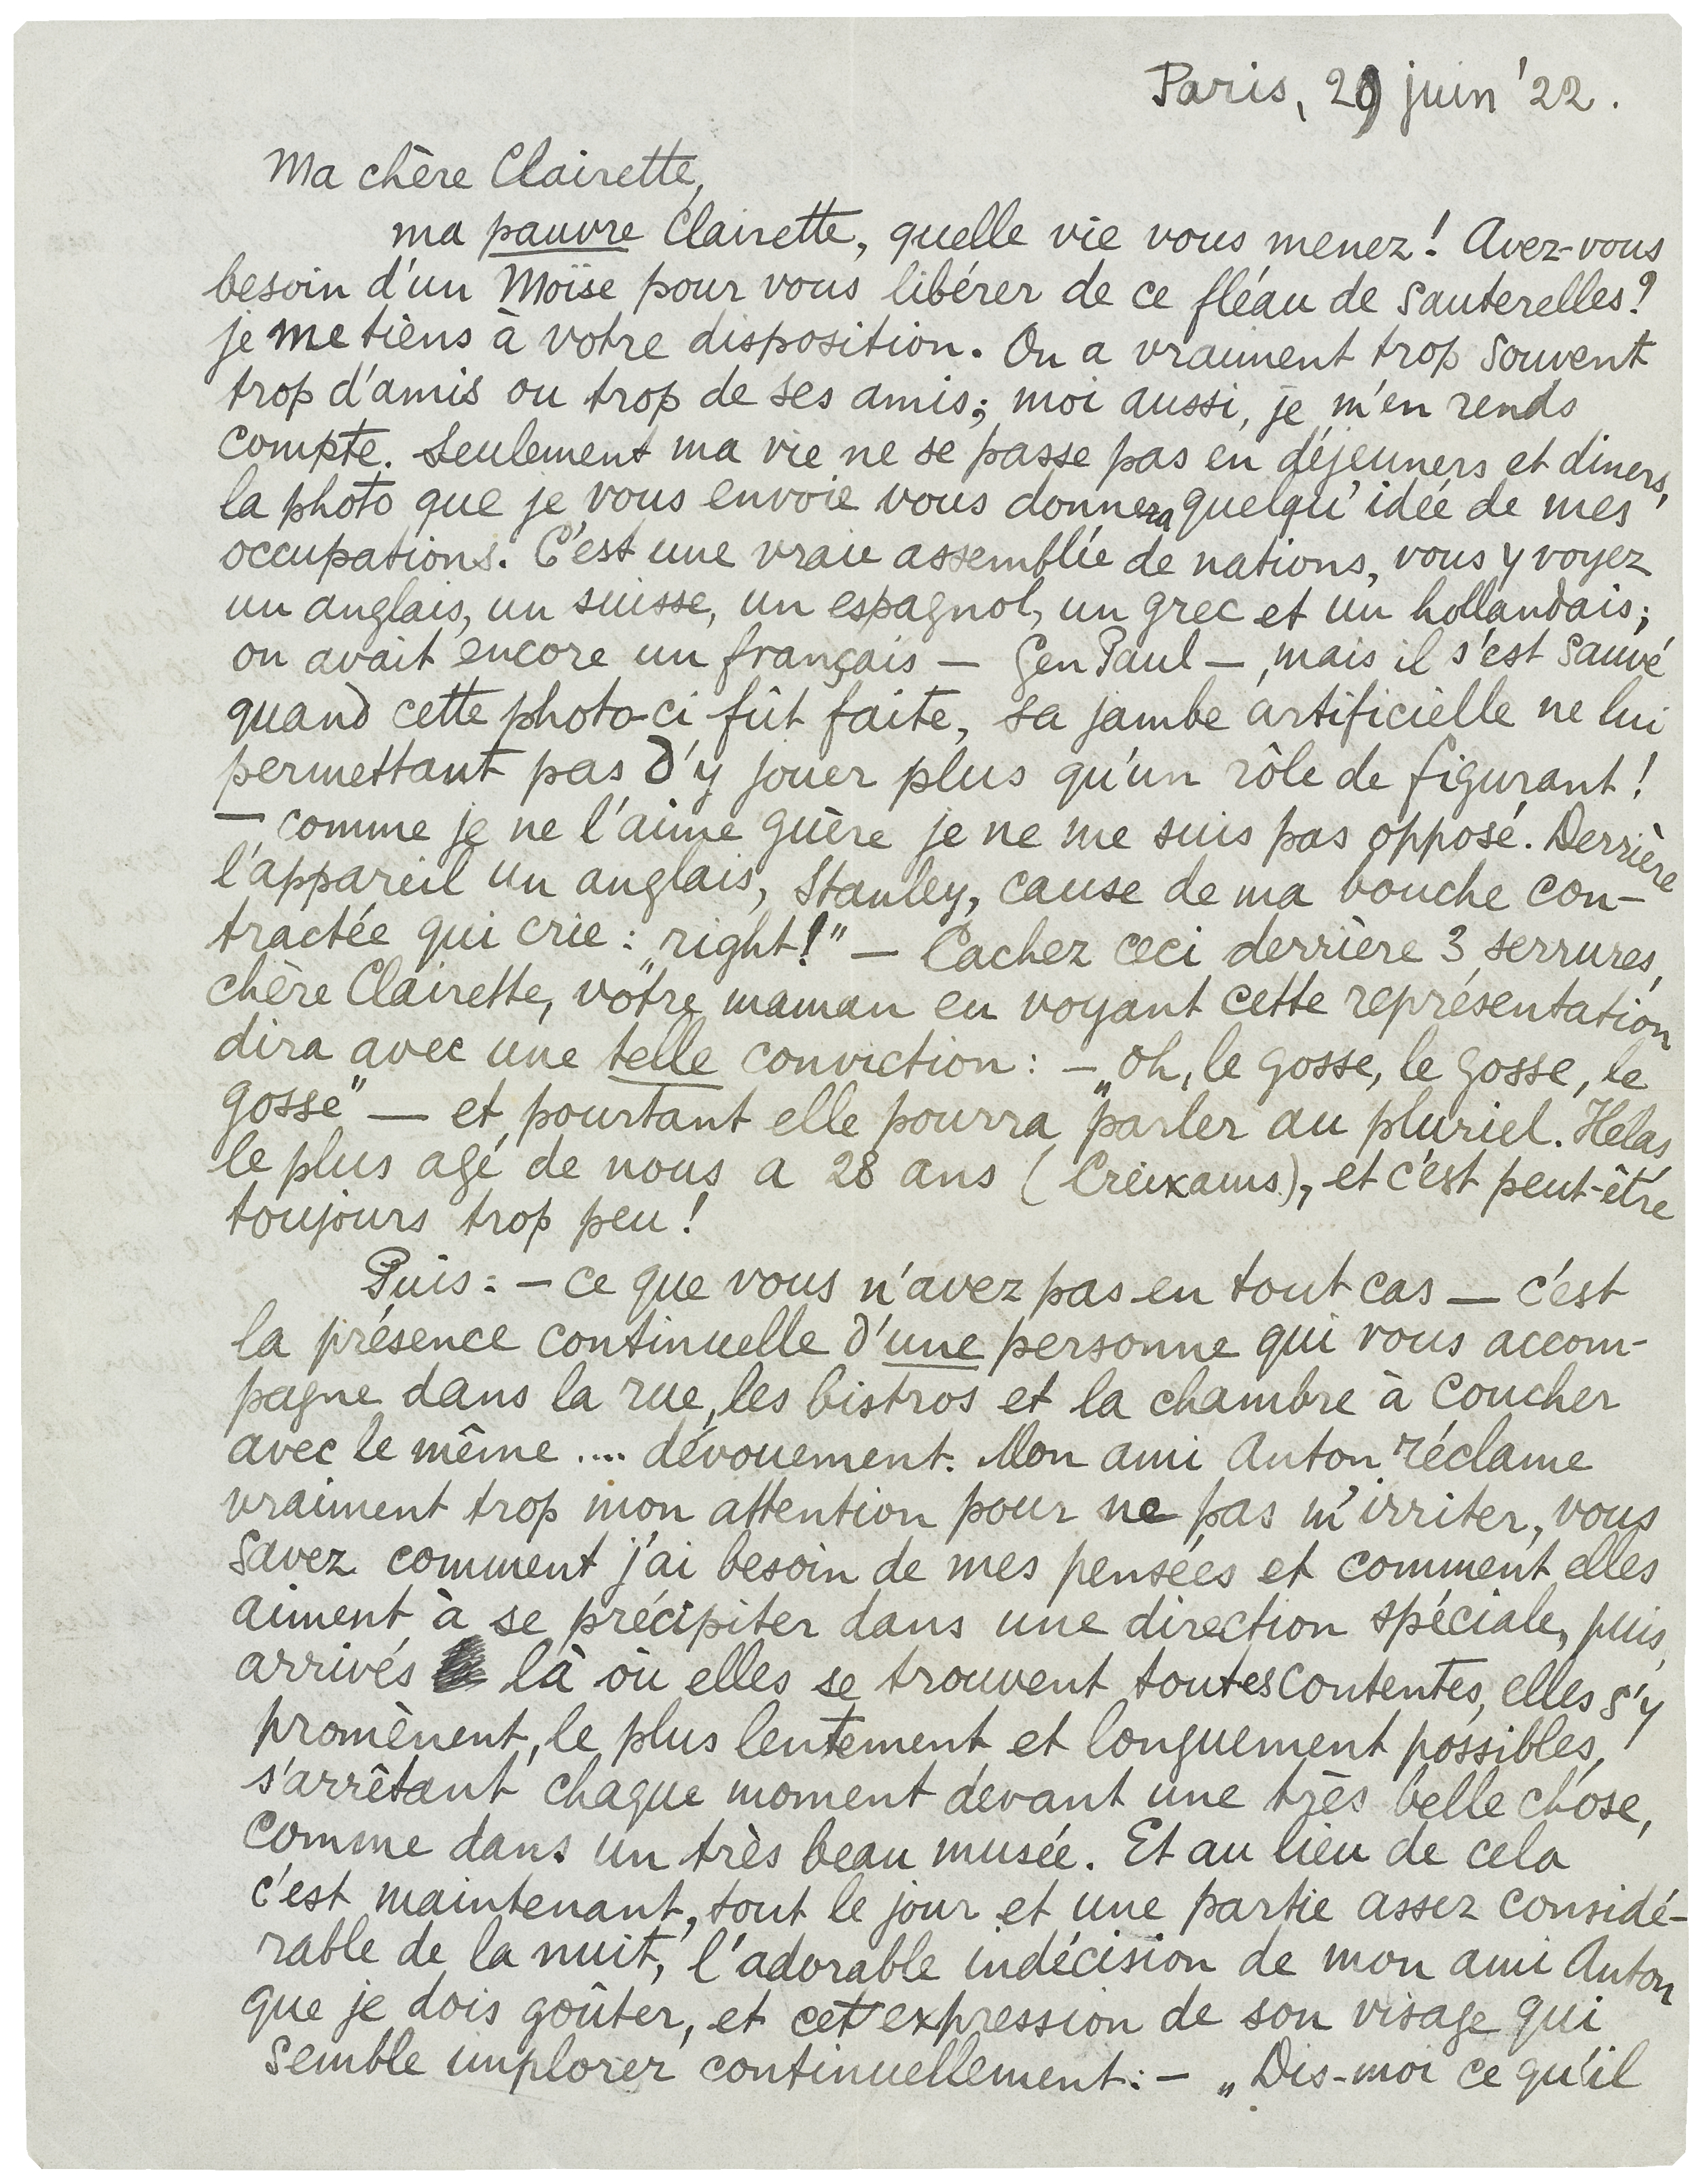 Paris, 29 juin '22.
Ma chère Clairette,
ma pauvre Clairette, quelle vie vous menez! Avez-vous
besoin d'un Moïse pour vous libérer de ce fléau de sauterelles?
je me tiens à votre disposition. On a vraiment trop souvent
trop d'amis ou trop de ses amis; moi aussi, je m'en rends
compte. Seulement ma vie ne se passe pas en déjeuners et diners,
la photo que je vous envoie vous donnera quelqu'idée de mes
occupations. C'est une vraie assemblée de nations, vous y voyez
un anglais, un suisse, un espagnol, un grec et un hollandais;
on avait encore un français — Gen Paul —, mais il s'est sauvé
quand cette photo-ci fût faite, sa jambe artificielle ne lui
permettant pas d'y jouer plus qu'un rôle de figurant!
— comme je ne l'aime guère je ne me suis pas opposé. Derrière
l'appareil un anglais, Stanley, cause de ma bouche con-
tractée qui crie: „right!" — Cachez ceci derrière 3 serrures,
chère Clairette, votre maman en voyant cette représentation
dira avec une telle conviction: — „oh, le gosse, le gosse, le
gosse" — et pourtant elle pourra parler au pluriel. Helas
le plus agé de nous a 28 ans (Creixams), et c'est peut-être
toujours trop peu!
Puis: — ce que vous n'avez pas en tout cas — c'est
la présence continuelle d'une personne qui vous accom-
pagne dans la rue, les bistros et la chambre à coucher
avec le même .... dévouement. Mon ami Anton réclame
vraiment trop mon attention pour ne pas m'irriter, vous
savez comment j'ai besoin de mes pensées et comment elles
aiment à se précipiter dans une direction spéciale, puis,
arrivés là où elles se trouvent toutes contentes, elles s'y
promènent, le plus lentement et longuement possibles,
s'arrêtant chaque moment devant une très belle chose,
comme dans un très beau musée. Et au lieu de cela
c'est maintenant, tout le jour et une partie assez considé-
rable de la nuit, l'adorable indécision de mon ami Anton
que je dois goûter, et cet expression de son visage qui
semble implorer continuellement: — „Dis-moi ce qu'il